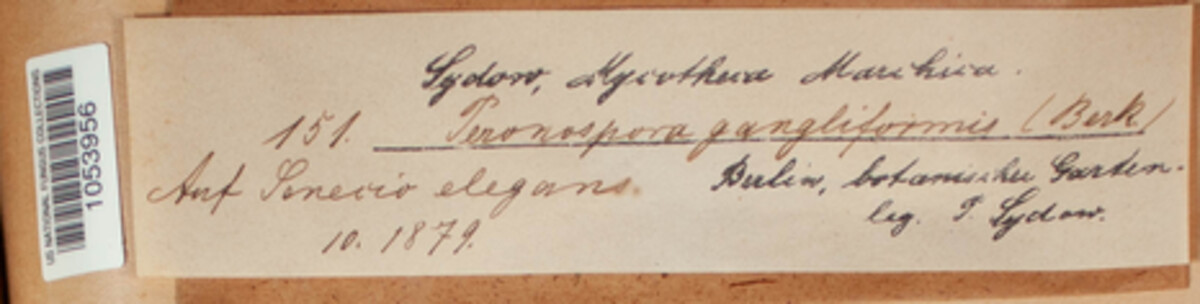 US NATIONAL FUNGUS COLLECTIONS
1053956
Sydow, Mycotheca Marchica.
151. Peronospora gangliformis (Berk.)
Auf Senecio elegans. Berlin, botanischer Garten.
10. 1879. leg. P. Sydow.